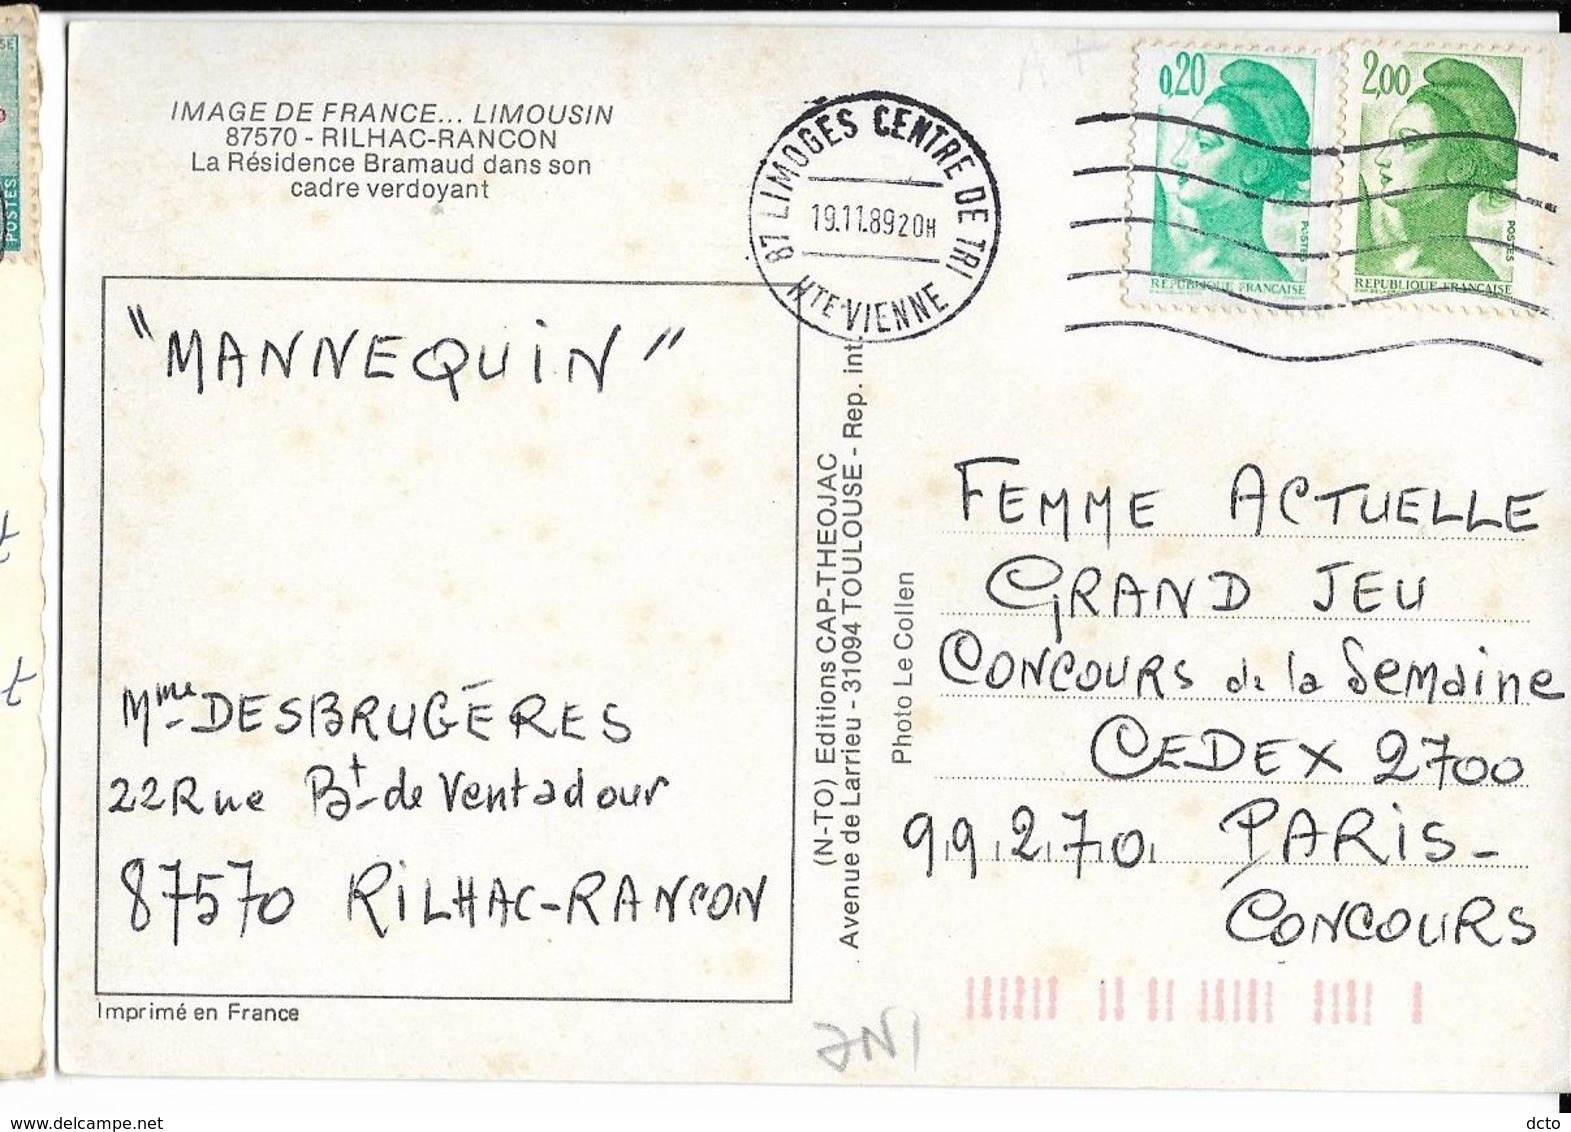 IMAGE DE FRANCE... LIMOUSIN
87570 - RILHAC-RANCON
La Résidence Bramaud dans son
cadre verdoyant
87 LIMOGES CENTRE DE TRI
19.11.89 20H
HTE-VIENNE
0,20
POSTES
REPUBLIQUE FRANCAISE
2,00
POSTES
REPUBLIQUE FRANCAISE
POSTES
"MANNEQUIN"
Mme DESBRUGÉRES
22 Rue Bt de Ventadour
87570 RILHAC-RANCON
Imprimé en France
(N-TO) Editions CAP-THEOJAC
Avenue de Larrieu - 31094 TOULOUSE - Rep. int.
Photo Le Collen
FEMME ACTUELLE
GRAND JEU
CONCOURS de la Semaine
CEDEX 2700
99270 PARIS-
CONCOURS
t
t
www.delcampe.net
dcto